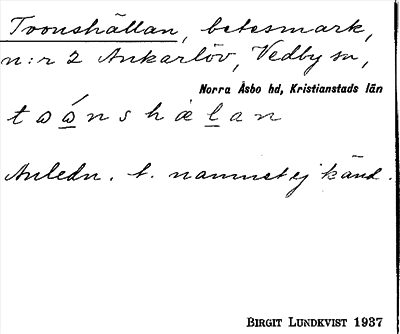 Tvonshällan, betesmark,
n:r 2 Ankarlöv, Vedby sn,
Norra Åsbo hd, Kristianstads län
Anledn. t. namnet ej känd.
BIRGIT LUNDKVIST 1937